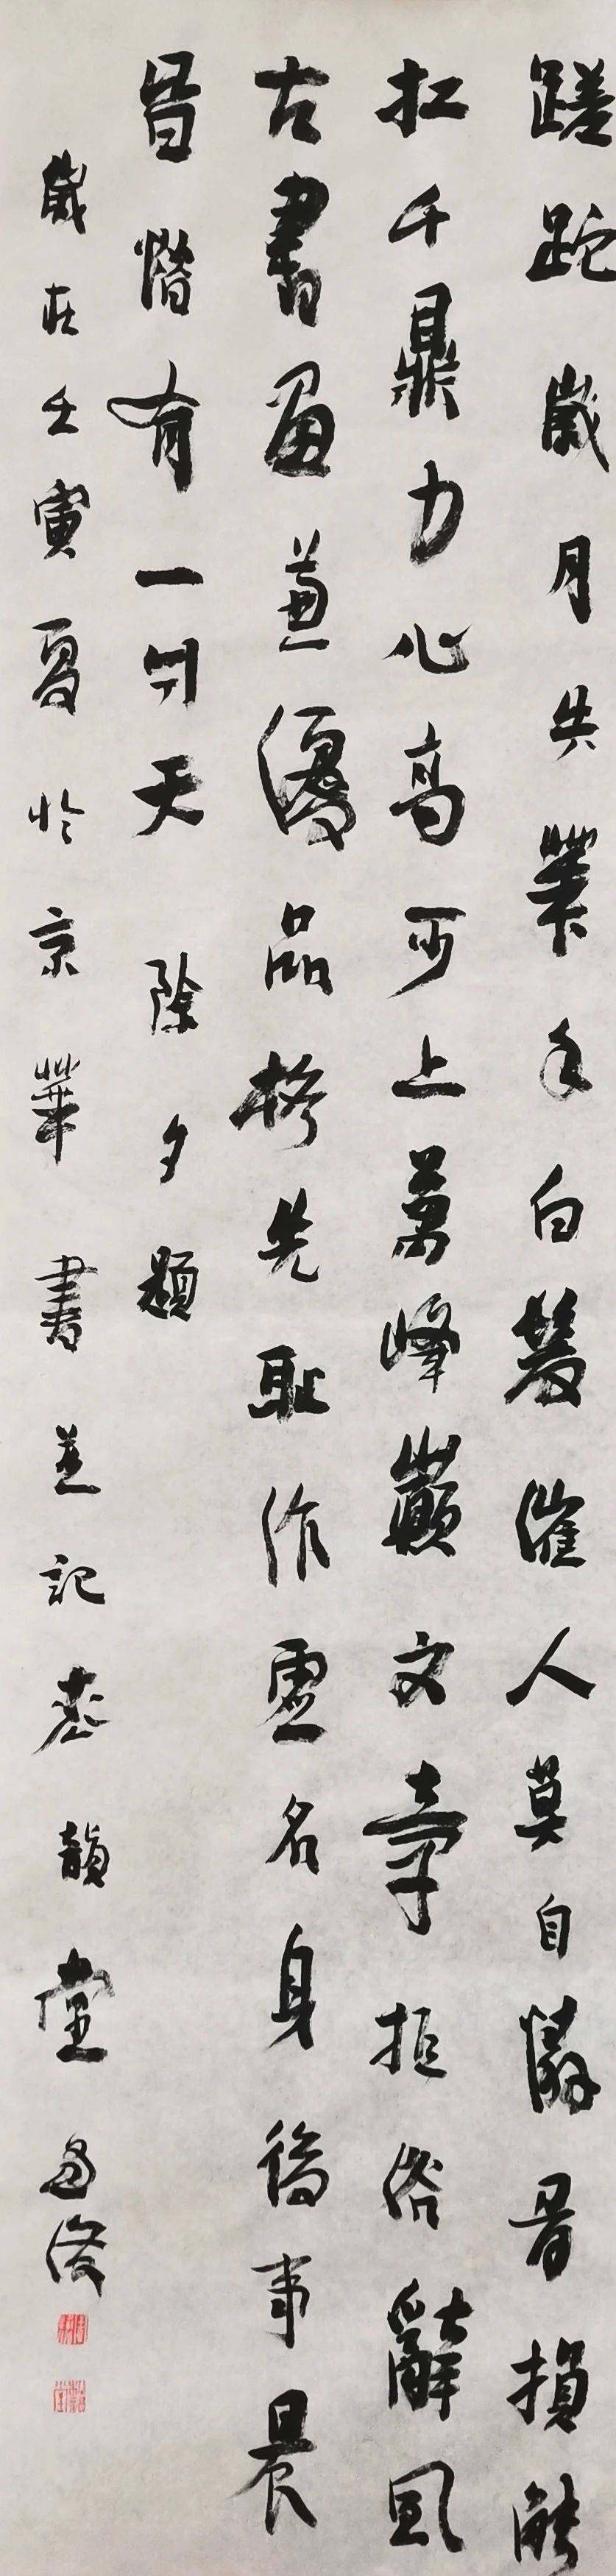 蹉跎歲月失業年白髮催人莫自憐骨損能
扛千鼎力心高可上萬峰巔文章拒俗辭風
古書畫兼優品格先恥作虛名身後事晨
昏有一天 除夕題
歲在壬寅夏於京華 書並記韻堂